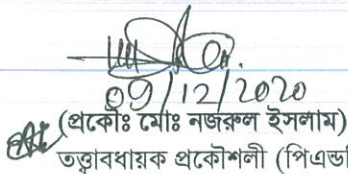 09/12/2020
(প্রকৌঃ মোঃ নজরুল ইসলাম)
তত্ত্বাবধায়ক প্রকৌশলী (পিএন্ড